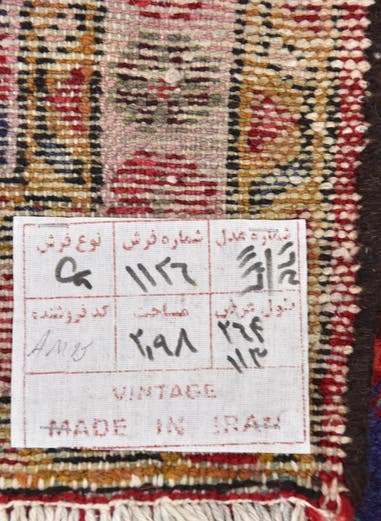 شماره عدل شماره فرش نوع فرش
۱۱۲۶
طول عرض مساحت کد فروشنده
۲۶۴ ۲,۹۸ AM25
۱۱۳
VINTAGE
MADE IN IRAN